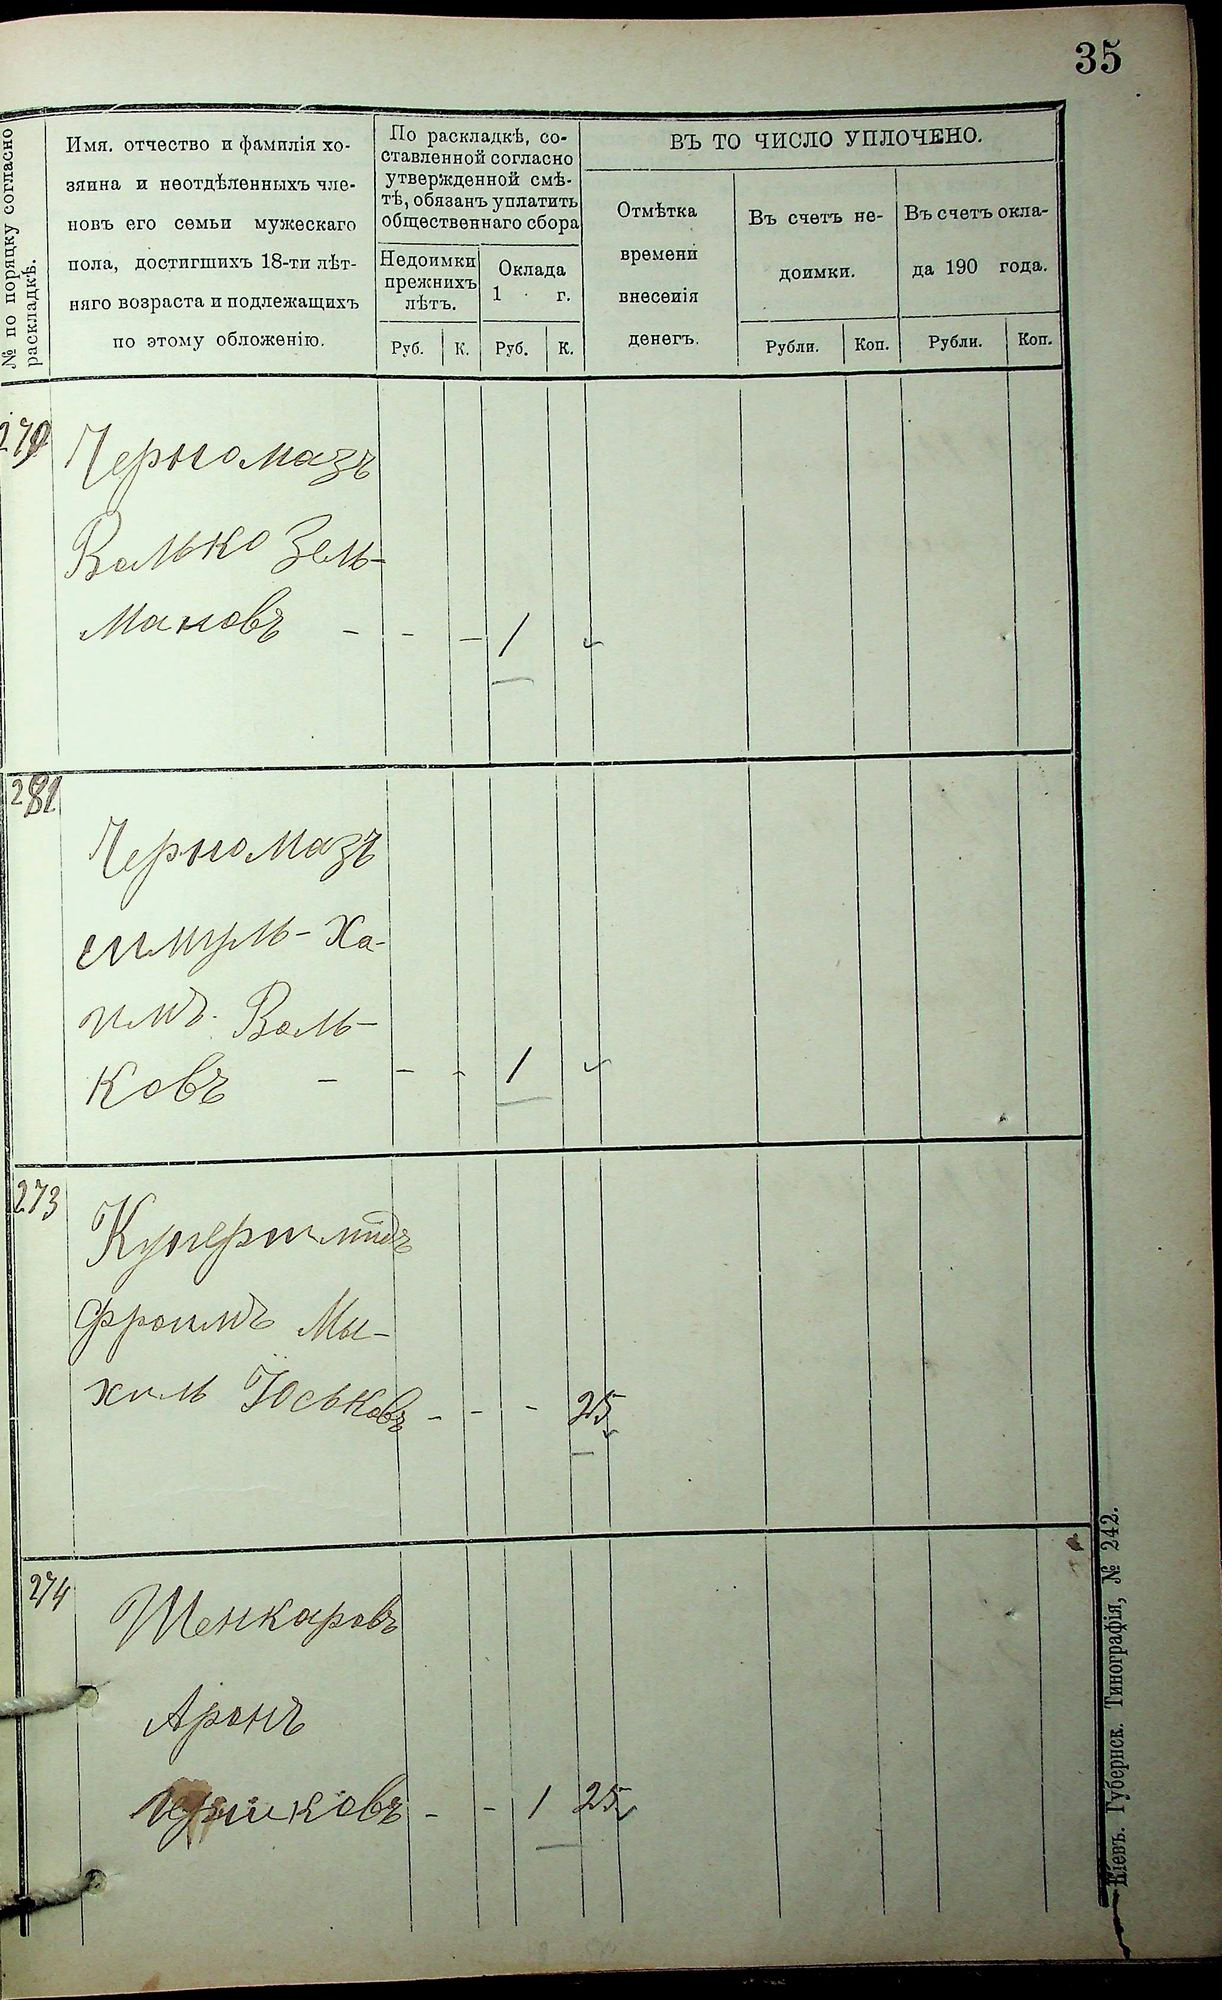 35
№ по поряцку согласно
раскладкѣ.
Имя. отчество и фамилія хо-
зяина и неотдѣленныхъ чле-
новъ его семьи мужескаго
пола, достигшихъ 18-ти лѣт-
няго возраста и подлежащихъ
по этому обложенію.
По раскладкѣ, со-
ставленной согласно
утвержденной смѣ-
тѣ, обязанъ уплатить
общественнаго сбора
Недоимки
прежнихъ
лѣтъ.
Оклада
1 г.
Руб. К. Руб. К.
ВЪ ТО ЧИСЛО УПЛОЧЕНО.
Отмѣтка
времени
внесенія
денегъ.
Въ счетъ не-
доимки.
Рубли. Коп.
Въ счетъ окла-
да 190 года.
Рубли. Коп.
Черномазъ
Валько Зель-
мановъ - - - 1
281
Черномазъ
Шмуль-Ха-
имъ Валь-
ковъ - - - 1
273
Купершмидъ
Фроимъ Мы-
хиль Юськовъ - - - 25
274
Шенкаровъ
Аронъ
- - 1 25
Кіевъ. Губернск. Типографія, № 242.